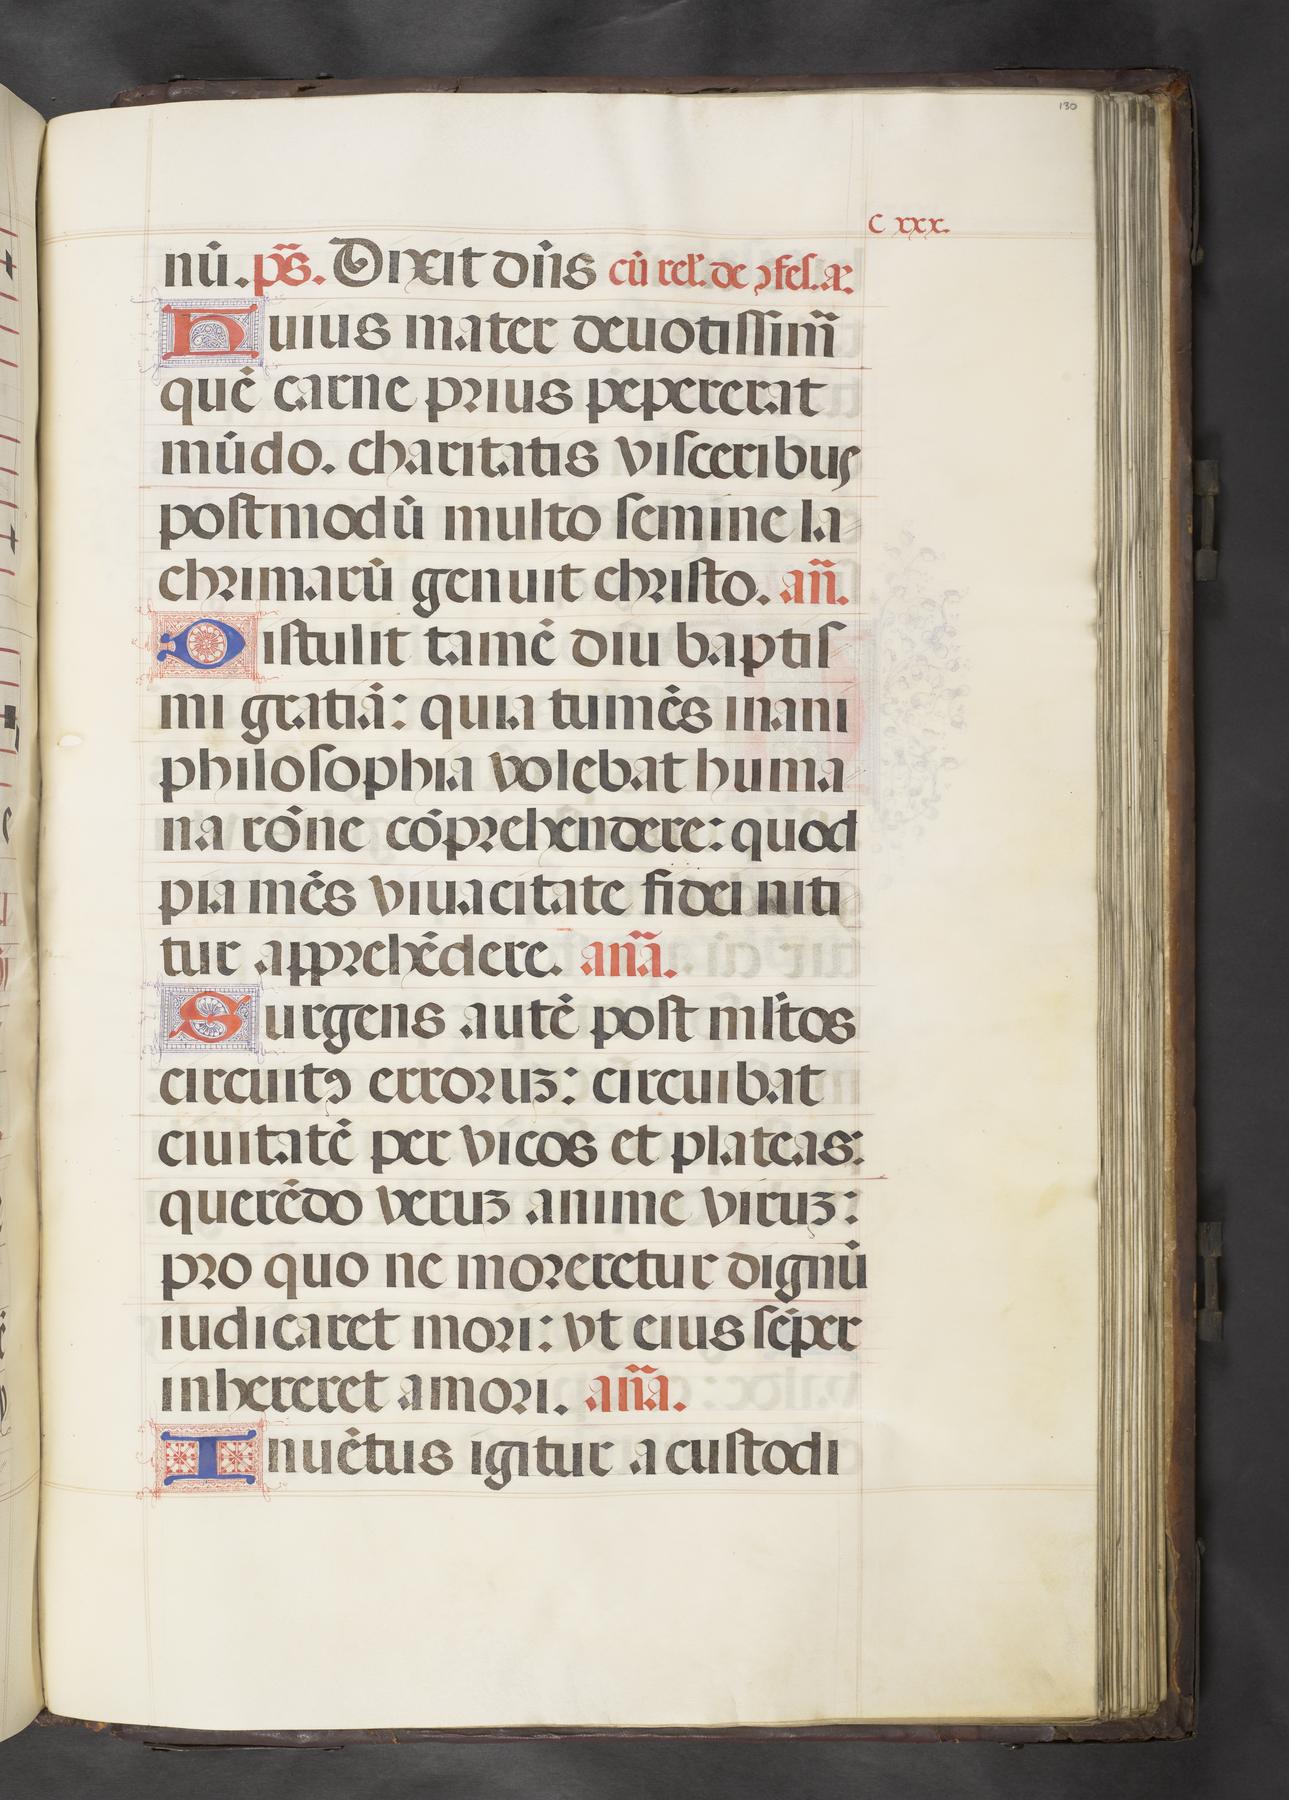 130
C xxx.
nū. ps̄. Dixit dn̄s cū rel̄. de ꝯfes. a͞n.
Huius mater deuotissim̄
quē carne prius pepererat
mūdo. charitatis visceribus
postmodū multo semine la
chrimarū genuit christo. an̄.
Distulit tamē diu baptis
mi gratiā: quia tumēs inani
philosophia volebat huma
na rōne cōprehendere: quod
pia mēs viuacitate fidei niti
tur apprehēdere. an̄a.
Surgens autē post ml̄tos
circuitꝯ erroruꝫ: circuibat
ciuitatē per vicos et plateas:
querēdo veruꝫ anime viruꝫ:
pro quo ne moreretur dignū
iudicaret mori: vt eius sēper
inhereret amori. an̄a.
Inuētus igitur a custodi